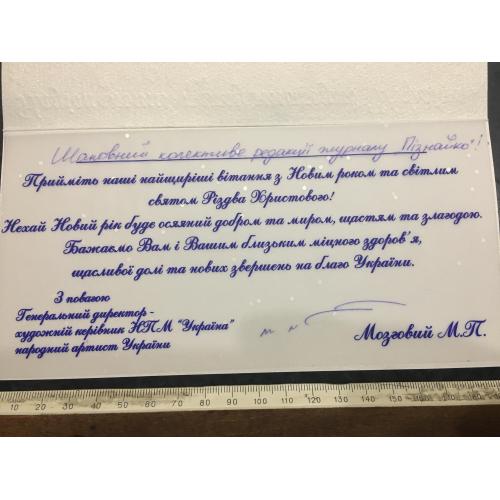 Шановний колективе редакції журналу "Пізнайко"!
Прийміть наші найщиріші вітання з Новим роком та світлим
святом Різдва Христового!
Нехай Новий рік буде осяяний добром та миром, щастям та злагодою.
Бажаємо Вам і Вашим близьким міцного здоров'я,
щасливої долі та нових звершень на благо України.
З повагою
Генеральний директор -
художній керівник НПМ "Україна"
народний артист України
Мозговий М.П.
10 20 30 40 50 60 70 80 90 100 110 120 130 140 150 160